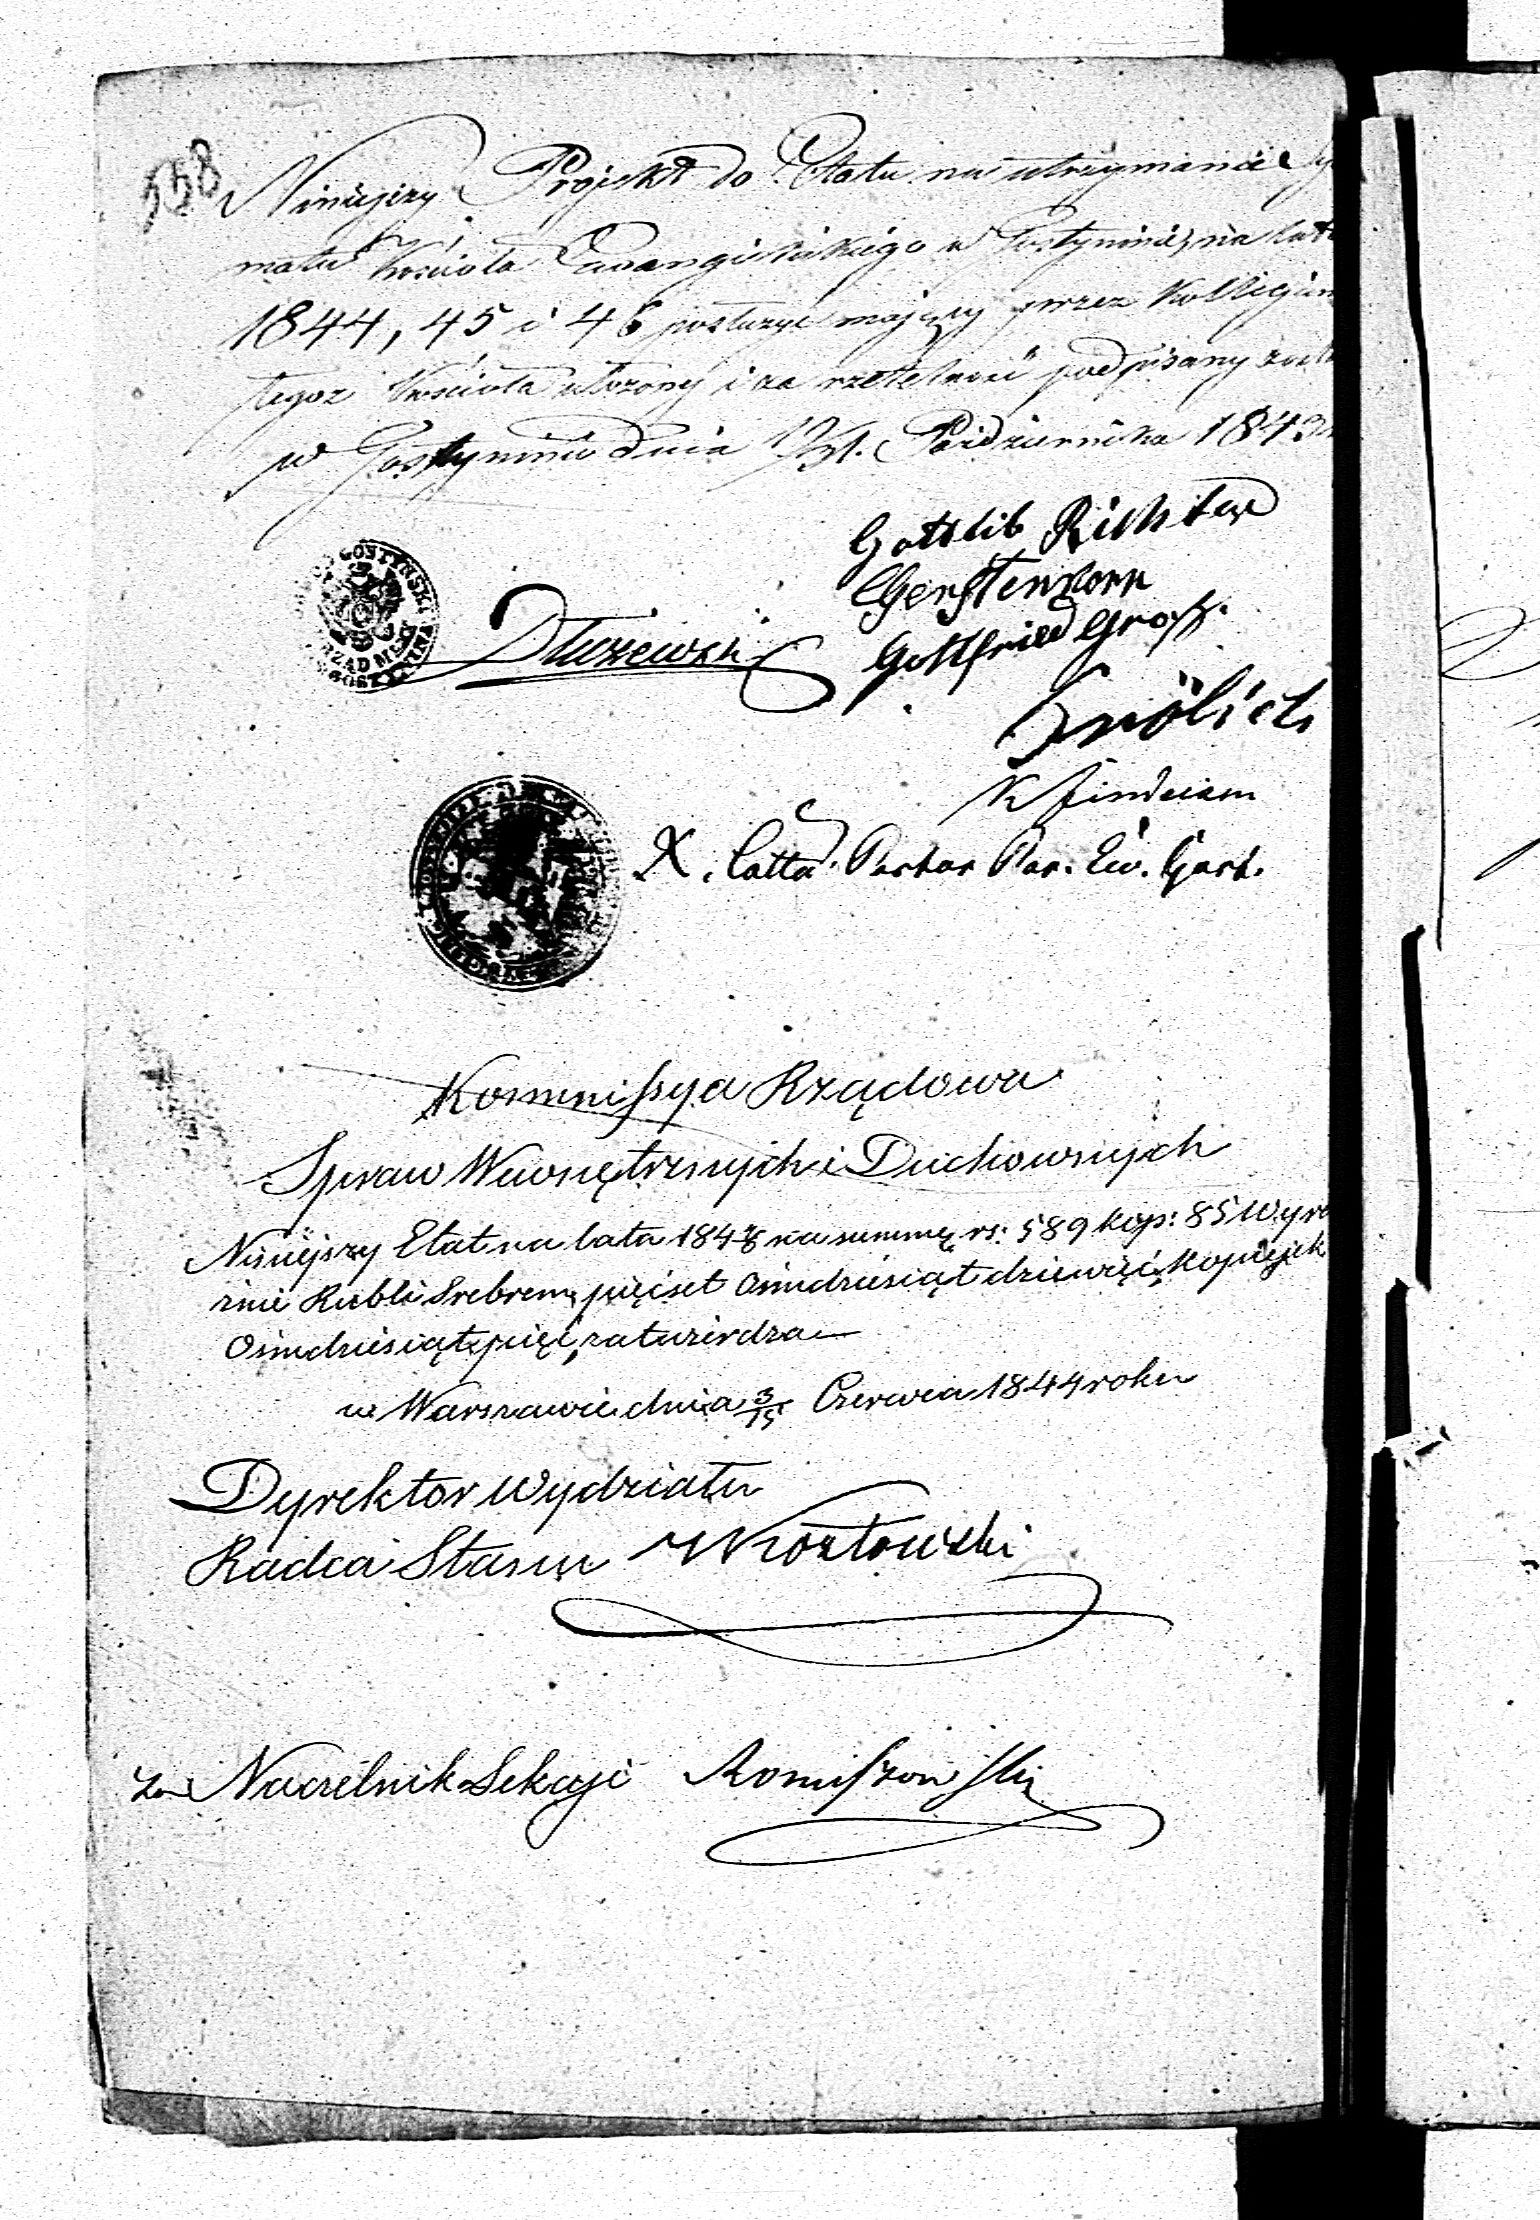 558
Niniejszy Projekt do Etatu na utrzymanie Sy
matu Kościoła Ewangielickiego w Gostyninie, na lata
1844, 45 i 46 posłużyć mający przez Kollegium
tegoż Kościoła ułożony i za rzetelność podpisany został
w Gostyninie dnia Października 1843
Gottlieb Richter
Gerstenkorn
Gottfried Groß.
Dłużewski
Frölich
X. Cotta. Pastor Par. Ew. Gost.
Kommissya Rządowa
Spraw Wewnętrznych i Duchownych
Niniejszy Etat na lata 184 4/6 na summę rs: 589 kop: 85 Wyra
źnie Rubli Srebrem pięćset Ośmdziesiąt dziewięć, Kopiejek
Ośmdziesiąt pięć, zatwierdza
w Warszawie dnia 3/15 Czerwca 1844 roku
Dyrektor Wydziału
Radca Stanu Kozłowski
za Naczelnik Sekcyi Romiszowski